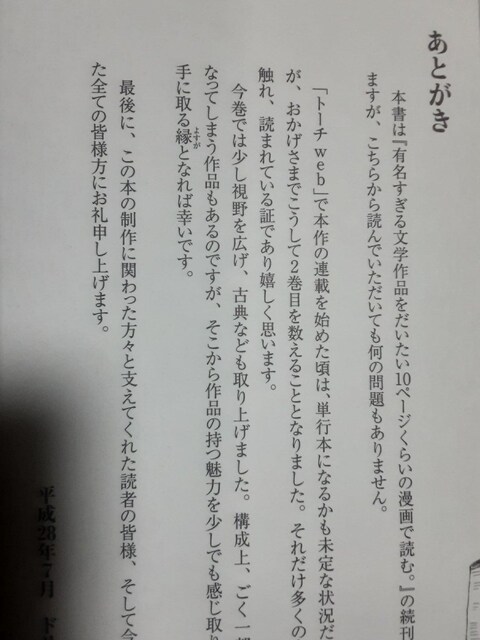 あとがき
本書は『有名すぎる文学作品をだいたい10ページくらいの漫画で読む。』の続刊
ますが、こちらから読んでいただいても何の問題もありません。
「トーチweb」で本作の連載を始めた頃は、単行本になるかも未定な状況だ
が、おかげさまでこうして2巻目を数えることとなりました。それだけ多くの
触れ、読まれている証であり嬉しく思います。
今巻では少し視野を広げ、古典なども取り上げました。構成上、ごく一部
なってしまう作品もあるのですが、そこから作品の持つ魅力を少しでも感じ取り
手に取る縁となれば幸いです。
よすが
最後に、この本の制作に関わった方々と支えてくれた読者の皆様、そして今
た全ての皆様方にお礼申し上げます。
平成28年7月 ド